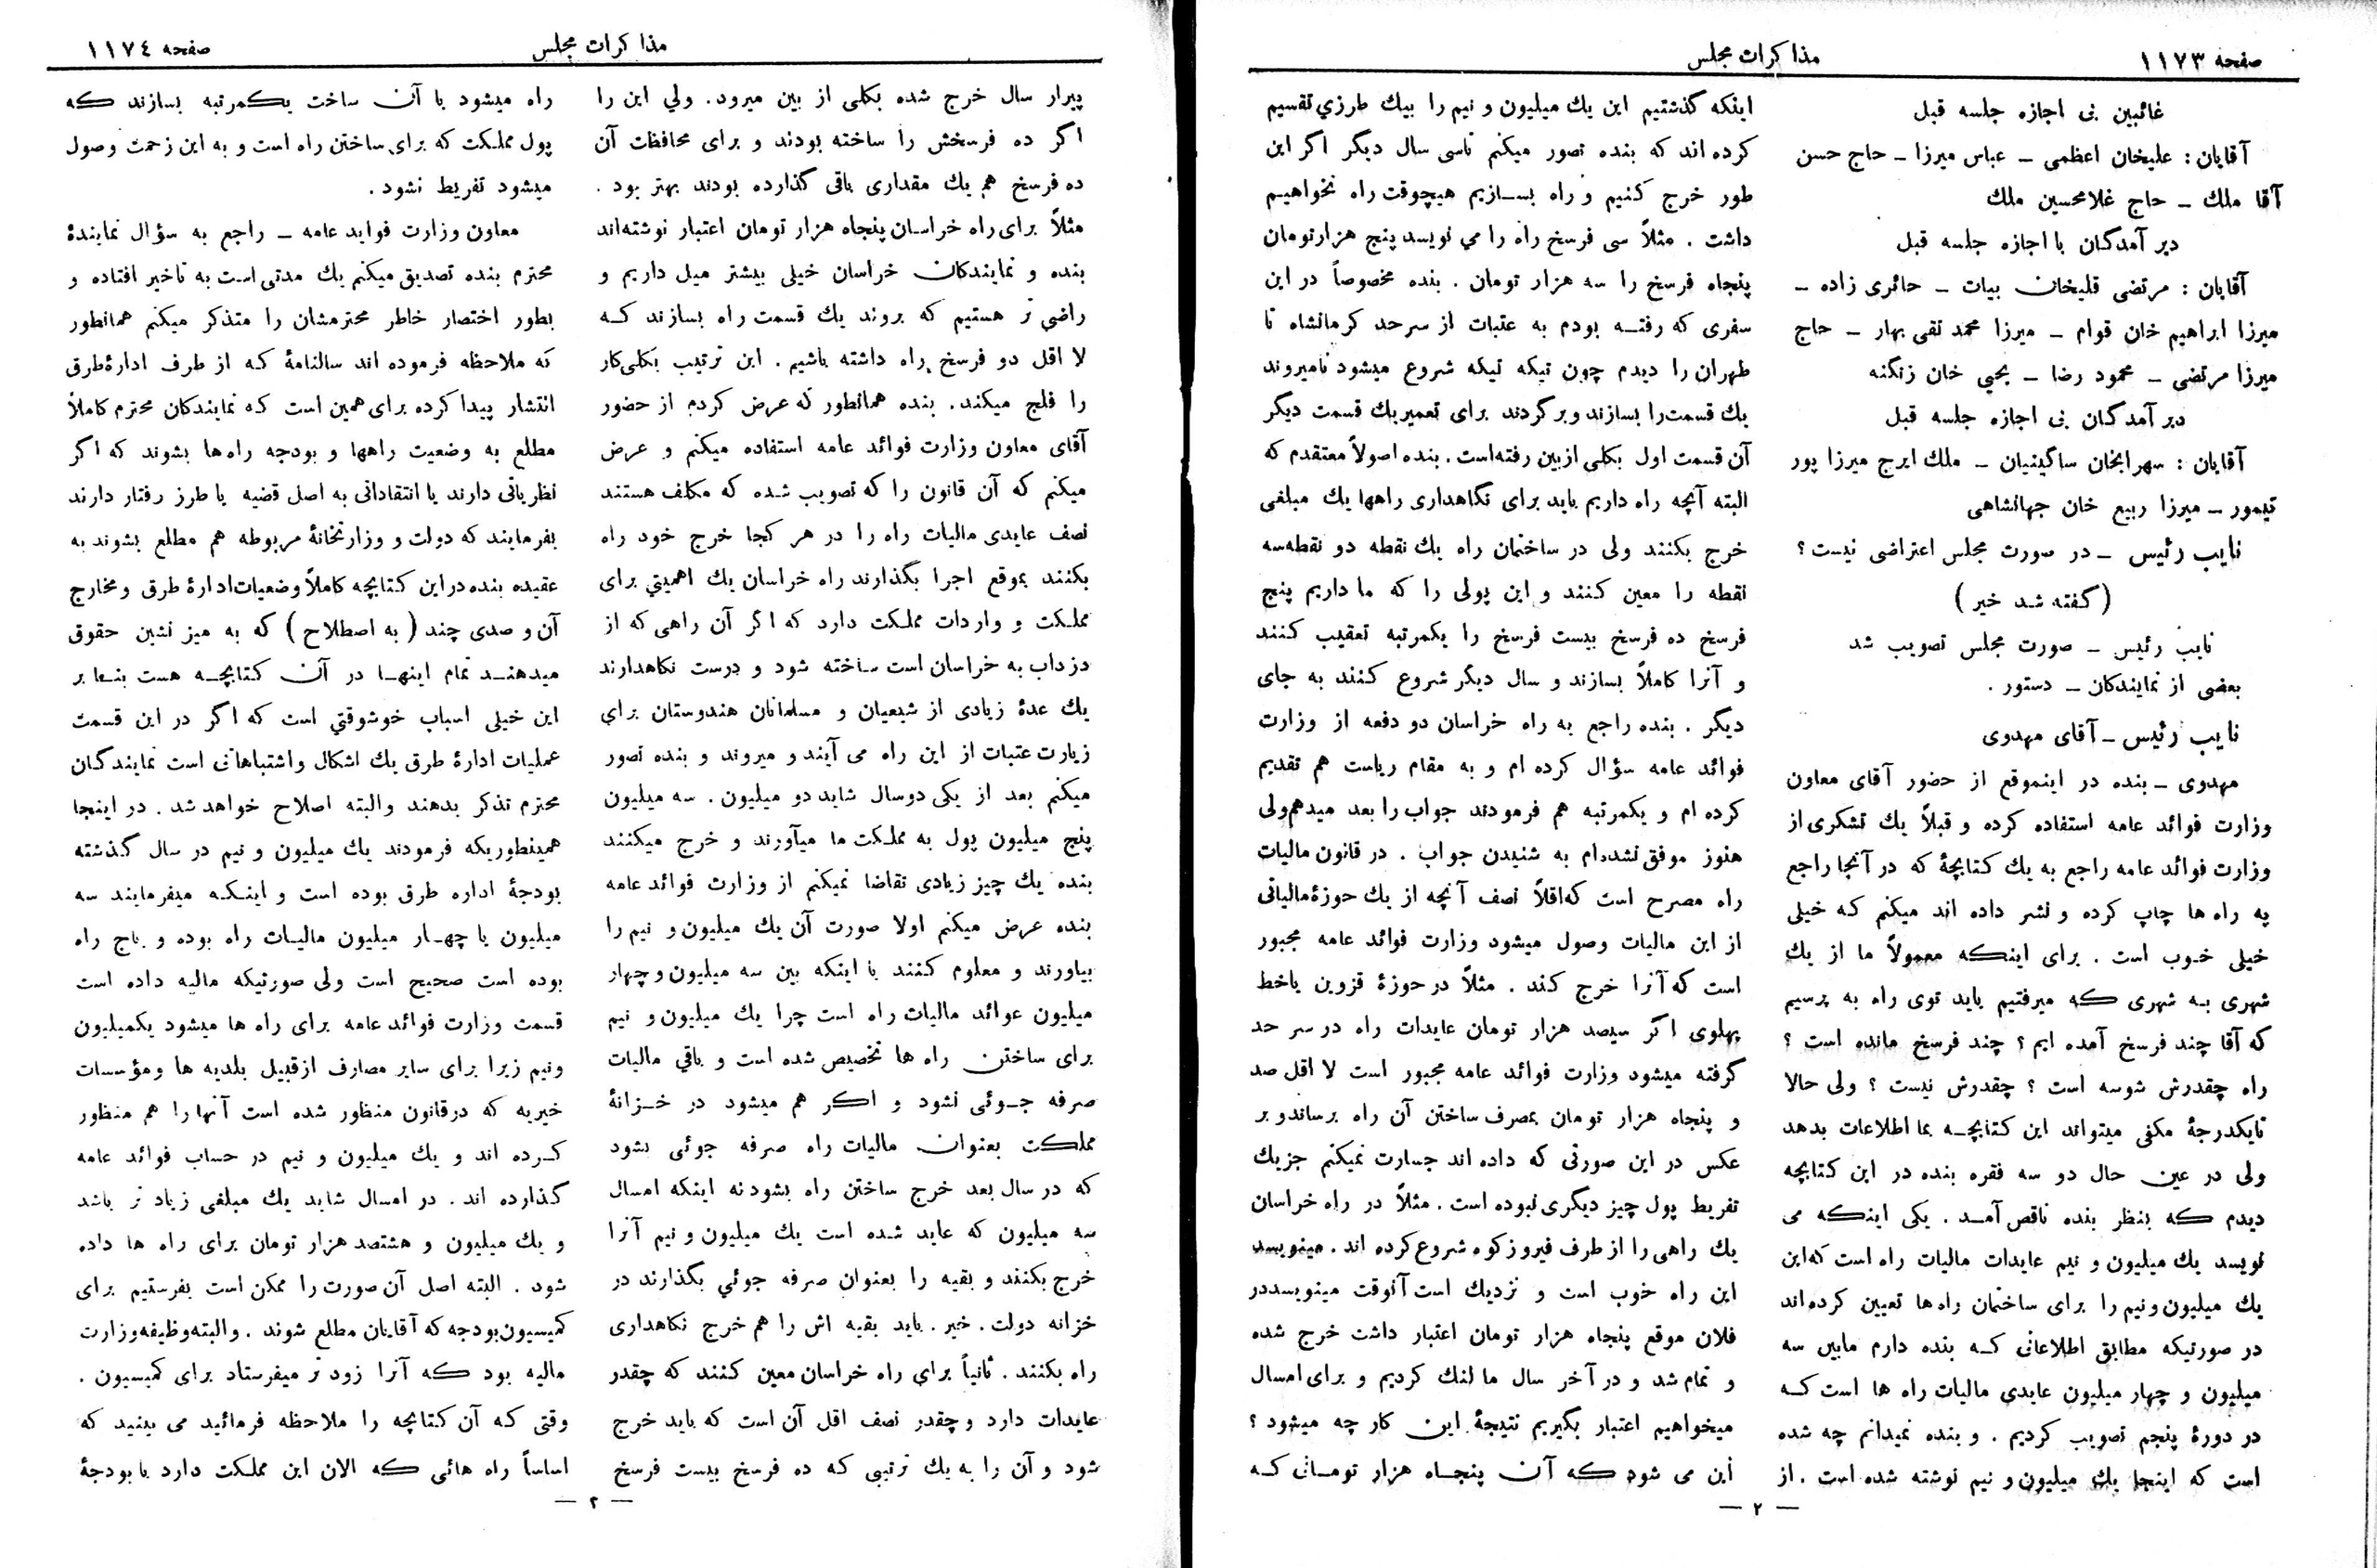 صفحه ۱۱۷۳
مذاکرات مجلس
غائبین بی اجازه جلسه قبل
آقایان : علیخان اعظمی ـ عباس میرزا ـ حاج حسن
آقا ملك ـ حاج غلامحسین ملك
دیر آمدگان با اجازه جلسه قبل
آقایان : مرتضی قلیخان بیات ـ حائری زاده ـ
میرزا ابراهیم خان قوام ـ میرزا محمد تقی بهار ـ حاج
میرزا مرتضی ـ محمود رضا ـ یحیی خان زنگنه
دیر آمدگان بی اجازه جلسه قبل
آقایان : سهرابخان ساگینیان ـ ملك ایرج میرزا پور
تیمور ـ میرزا ربیع خان جهانشاهی
نایب رئیس ـ در صورت مجلس اعتراضی نیست ؟
( گفته شد خیر )
نایب رئیس ـ صورت مجلس تصویب شد
بعضی از نمایندگان ـ دستور .
نایب رئیس ـ آقای مهدوی
مهدوی ـ بنده در اینموقع از حضور آقای معاون
وزارت فوائد عامه استفاده کرده و قبلاً یك تشکری از
وزارت فوائد عامه راجع به یك کتابچهٔ که در آنجا راجع
به راه ها چاپ کرده و نشر داده اند میکنم که خیلی
خیلی خوب است . برای اینکه معمولاً ما از یك
شهری به شهری که میرفتیم باید توی راه به پرسیم
که آقا چند فرسخ آمده ایم ؟ چند فرسخ مانده است ؟
راه چقدرش شوسه است ؟ چقدرش نیست ؟ ولی حالا
تایکدرجهٔ مکفی میتواند این کتابچه بما اطلاعات بدهد
ولی در عین حال دو سه فقره بنده در این کتابچه
دیدم که بنظر بنده ناقص آمد . یکی اینکه می
نویسد یك میلیون و نیم عایدات مالیات راه است که این
یك میلیون و نیم را برای ساختمان راه ها تعیین کرده اند
در صورتیکه مطابق اطلاعاتی که بنده دارم مابین سه
میلیون و چهار میلیون عایدی مالیات راه ها است که
در دورهٔ پنجم تصویب کردیم . و بنده نمیدانم چه شده
است که اینجا یك میلیون و نیم نوشته شده است . از
اینکه گذشتیم این یك میلیون و نیم را بیك طرزی تقسیم
کرده اند که بنده تصور میکنم تاسی سال دیگر اگر این
طور خرج کنیم و راه بسازیم هیچوقت راه نخواهیم
داشت . مثلاً سی فرسخ راه را می نویسد پنج هزار تومان
پنجاه فرسخ را سه هزار تومان . بنده مخصوصاً در این
سفری که رفته بودم به عتبات از سرحد کرمانشاه تا
طهران را دیدم چون تیکه تیکه شروع میشود تامیروند
یك قسمت را بسازند و برگردند برای تعمیر یك قسمت دیگر
آن قسمت اول بکلی از بین رفته است . بنده اصولاً معتقدم که
البته آنچه راه داریم باید برای نگاهداری راهها یك مبلغی
خرج بکنند ولی در ساختمان راه یك نقطه دو نقطه سه
نقطه را معین کنند و این پولی را که ما داریم پنج
فرسخ ده فرسخ بیست فرسخ را یکمرتبه تعقیب کنند
و آنرا کاملاً بسازند و سال دیگر شروع کنند به جای
دیگر . بنده راجع به راه خراسان دو دفعه از وزارت
فوائد عامه سؤال کرده ام و به مقام ریاست هم تقدیم
کرده ام و یکمرتبه هم فرمودند جواب را بعد میدهم ولی
هنوز موفق نشده ام به شنیدن جواب . در قانون مالیات
راه مصرح است که اقلاً نصف آنچه از یك حوزهٔ مالیاتی
از این مالیات وصول میشود وزارت فوائد عامه مجبور
است که آنرا خرج کند . مثلاً در حوزهٔ قزوین یاخط
پهلوی اگر سیصد هزار تومان عایدات راه در سر حد
گرفته میشود وزارت فوائد عامه مجبور است لا اقل صد
و پنجاه هزار تومان بمصرف ساختن آن راه برساند و بر
عکس در این صورتی که داده اند جسارت نمیکنم جز یك
تفریط پول چیز دیگری نبوده است . مثلاً در راه خراسان
یك راهی را از طرف فیروزکوه شروع کرده اند . مینویسد
این راه خوب است و نزدیك است آنوقت مینویسد در
فلان موقع پنجاه هزار تومان اعتبار داشت خرج شده
و تمام شد و در آخر سال ما لنك کردیم و برای امسال
میخواهیم اعتبار بگیریم نتیجهٔ این کار چه میشود ؟
این می شود که آن پنجاه هزار تومانی که
— ۲ —
صفحه ۱۱۷٤
مذاکرات مجلس
پیرار سال خرج شده بکلی از بین میرود . ولی این را
اگر ده فرسخش را ساخته بودند و برای محافظات آن
ده فرسخ هم یك مقداری باقی گذارده بودند بهتر بود .
مثلاً برای راه خراسان پنجاه هزار تومان اعتبار نوشته اند
بنده و نمایندکان خراسان خیلی بیشتر میل داریم و
راضی تر هستیم که بروند یك قسمت راه بسازند که
لا اقل دو فرسخ راه داشته باشیم . این ترتیب بکلی کار
را فلج میکند . بنده همانطور که عرض کردم از حضور
آقای معاون وزارت فوائد عامه استفاده میکنم و عرض
میکنم که آن قانون را که تصویب شده که مکلف هستند
نصف عایدی مالیات راه را در هر کجا خرج خود راه
بکنند بموقع اجرا بگذارند راه خراسان یك اهمیتی برای
مملکت و واردات مملکت دارد که اگر آن راهی که از
دزداب به خراسان است ساخته شود و درست نگاهدارند
یك عدهٔ زیادی از شیعیان و مسلمانان هندوستان برای
زیارت عتبات از این راه می آیند و میروند و بنده تصور
میکنم بعد از یکی دو سال شاید دو میلیون . سه میلیون
پنج میلیون پول به مملکت ما میآورند و خرج میکنند
بنده یك چیز زیادی تقاضا نمیکنم از وزارت فوائد عامه
بنده عرض میکنم اولا صورت آن یك میلیون و نیم را
بیاورند و معلوم کنند با اینکه بین سه میلیون و چهار
میلیون عوائد مالیات راه است چرا یك میلیون و نیم
برای ساختن راه ها تخصیص شده است و باقی مالیات
صرفه جوئی نشود و اگر هم میشود در خزانهٔ
مملکت بعنوان مالیات راه صرفه جوئی بشود
که در سال بعد خرج ساختن راه بشود نه اینکه امسال
سه میلیون که عاید شده است یك میلیون و نیم آنرا
خرج بکنند و بقیه را بعنوان صرفه جوئی بگذارند در
خزانه دولت . خیر . باید بقیه اش را هم خرج نگاهداری
راه بکنند . ثانیاً برای راه خراسان معین کنند که چقدر
عایدات دارد و چقدر نصف اقل آن است که باید خرج
شود و آن را به یك ترتیبی که ده فرسخ بیست فرسخ
راه میشود با آن ساخت یکمرتبه بسازند که
پول مملکت که برای ساختن راه است و به این زحمت وصول
میشود تفریط نشود .
معاون وزارت فواید عامه ـ راجع به سؤال نمایندهٔ
محترم بنده تصدیق میکنم یك مدتی است به تاخیر افتاده و
بطور اختصار خاطر محترمشان را متذکر میکنم همانطور
که ملاحظه فرموده اند سالنامهٔ که از طرف ادارهٔ طرق
انتشار پیدا کرده برای همین است که نمایندکان محترم کاملاً
مطلع به وضعیت راهها و بودجه راه ها بشوند که اگر
نظریاتی دارند یا انتقاداتی به اصل قضیه یا طرز رفتار دارند
بفرمایند که دولت و وزارتخانهٔ مربوطه هم مطلع بشوند به
عقیده بنده در این کتابچه کاملاً وضعیات ادارهٔ طرق و مخارج
آن و صدی چند ( به اصطلاح ) که به میز نشین حقوق
میدهند تمام اینها در آن کتابچه هست بنا بر
این خیلی اسباب خوشوقتی است که اگر در این قسمت
عملیات ادارهٔ طرق یك اشکال و اشتباهاتی است نمایندگان
محترم تذکر بدهند و البته اصلاح خواهد شد . در اینجا
همینطوریکه فرمودند یك میلیون و نیم در سال گذشته
بودجهٔ اداره طرق بوده است و اینکه میفرمایند سه
میلیون یا چهار میلیون مالیات راه بوده و باج راه
بوده است صحیح است ولی صورتیکه مالیه داده است
قسمت وزارت فوائد عامه برای راه ها میشود یکمیلیون
و نیم زیرا برای سایر مصارف از قبیل بلدیه ها و مؤسسات
خیریه که در قانون منظور شده است آنها را هم منظور
کرده اند و یك میلیون و نیم در حساب فوائد عامه
گذارده اند . در امسال شاید یك مبلغی زیاد تر باشد
و یك میلیون و هشتصد هزار تومان برای راه ها داده
شود . البته اصل آن صورت را ممکن است بفرستیم برای
کمیسیون بودجه که آقایان مطلع شوند . و البته وظیفه وزارت
مالیه بود که آنرا زود تر میفرستاد برای کمیسیون .
وقتی که آن کتابچه را ملاحظه فرمائید می بینید که
اساساً راه هائی که الان این مملکت دارد با بودجهٔ
— ۲ —